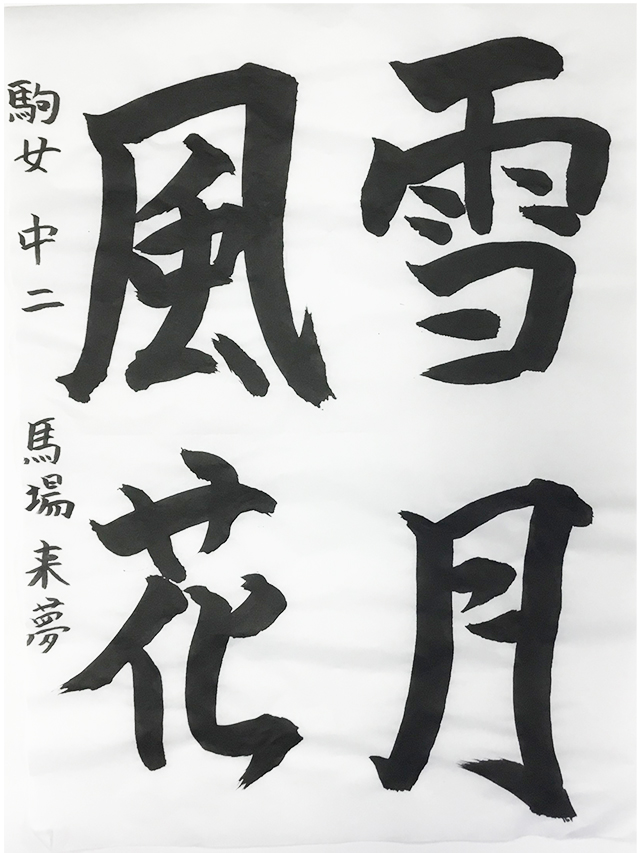 雪月
風花
駒女 中二 馬場来夢